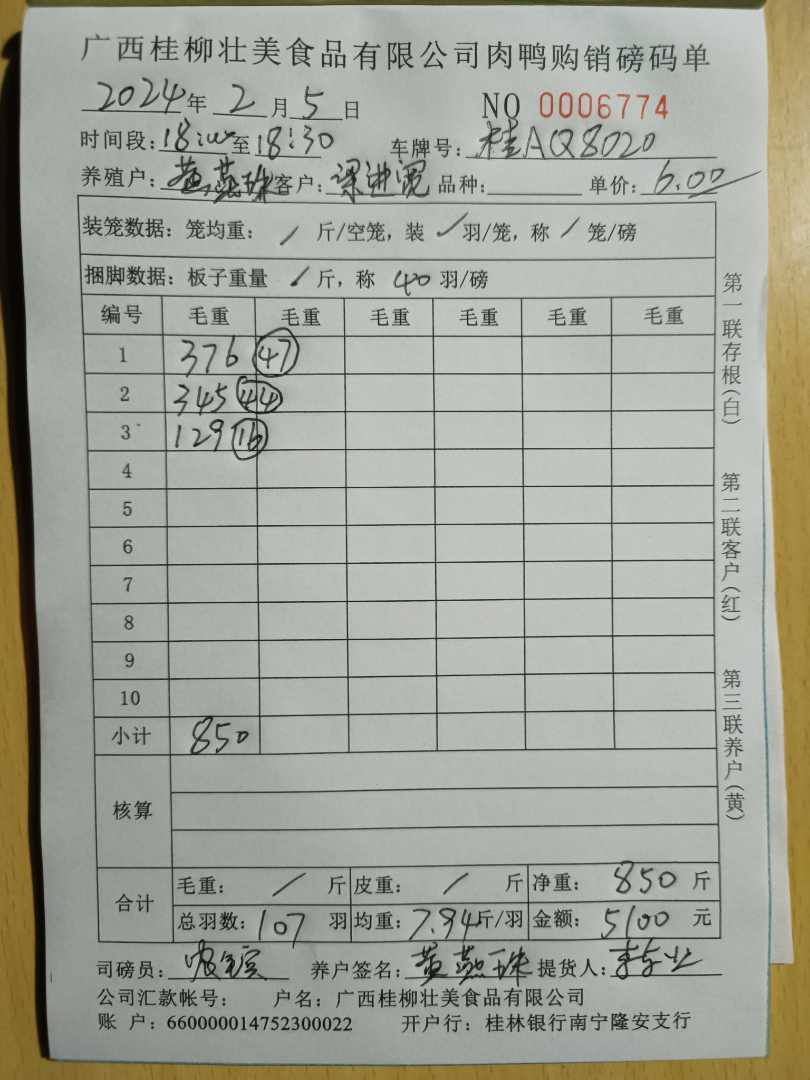 广西桂柳壮美食品有限公司肉鸭购销磅码单
2024年 2 月 5 日 NO 0006774
时间段: 18:00 至 18:30 车牌号: 桂AQ8020
养殖户: 黄燕珠 客户: 梁进宽 品种: 单价: 6.00
装笼数据: 笼均重: / 斤/空笼, 装 / 羽/笼, 称 / 笼/磅
捆脚数据: 板子重量 / 斤, 称 40 羽/磅
编号 毛重 毛重 毛重 毛重 毛重 毛重
1 376 47
2 345 44
3 129 16
4
5
6
7
8
9
10
小计 850
核算
合计 毛重: / 斤 皮重: / 斤 净重: 850 斤
总羽数: 107 羽 均重: 7.94 斤/羽 金额: 5100 元
司磅员: 养户签名: 黄燕珠 提货人:
公司汇款帐号: 户名: 广西桂柳壮美食品有限公司
账 户: 660000014752300022 开户行: 桂林银行南宁隆安支行
第一联存根(白)
第二联客户(红)
第三联养户(黄)